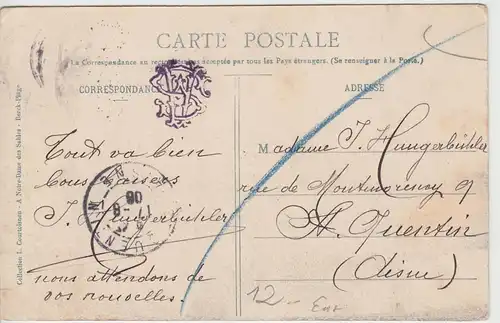 CARTE POSTALE
La Correspondance au recto n'est pas acceptée par tous les Pays étrangers. (Se renseigner à la Poste.)
CORRESPONDANCE
ADRESSE
Tout va bien
bons baisers
J. Hungerbühler
nous attendons de
vos nouvelles.
Madame J. Hungerbühler
rue de Montmorency 9
St. Quentin
(Aisne)
12.-
Collection L. Courtoison - A Notre-Dame des Sables - Berck-Plage